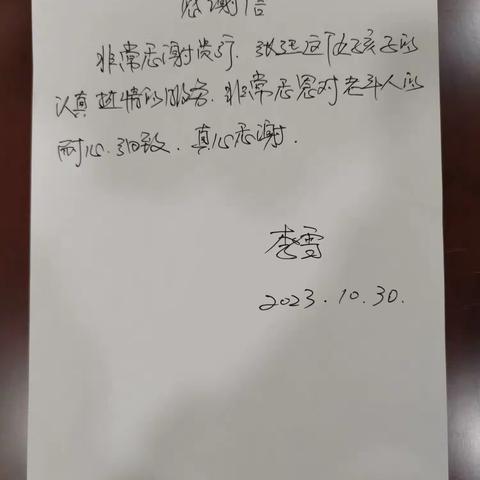 感谢信
非常感谢贵行.张钰这个女孩子的
认真热情的服务.非常感恩对老年人的
耐心.细致.真心感谢.
李雪
2023.10.30.